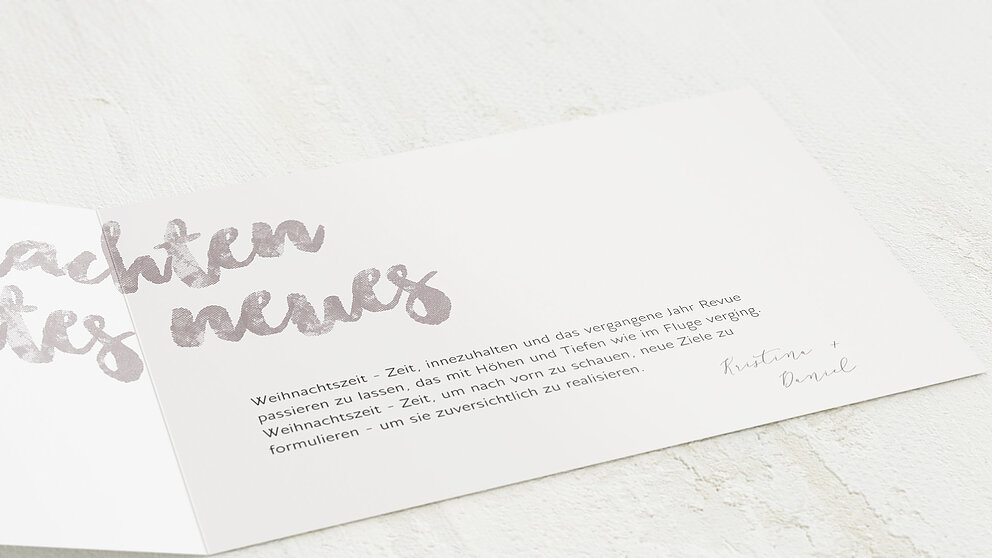 achten
tes neues
Weihnachtszeit – Zeit, innezuhalten und das vergangene Jahr Revue
passieren zu lassen, das mit Höhen und Tiefen wie im Fluge verging.
Weihnachtszeit – Zeit, um nach vorn zu schauen, neue Ziele zu
formulieren – um sie zuversichtlich zu realisieren.
Kristina +
Daniel